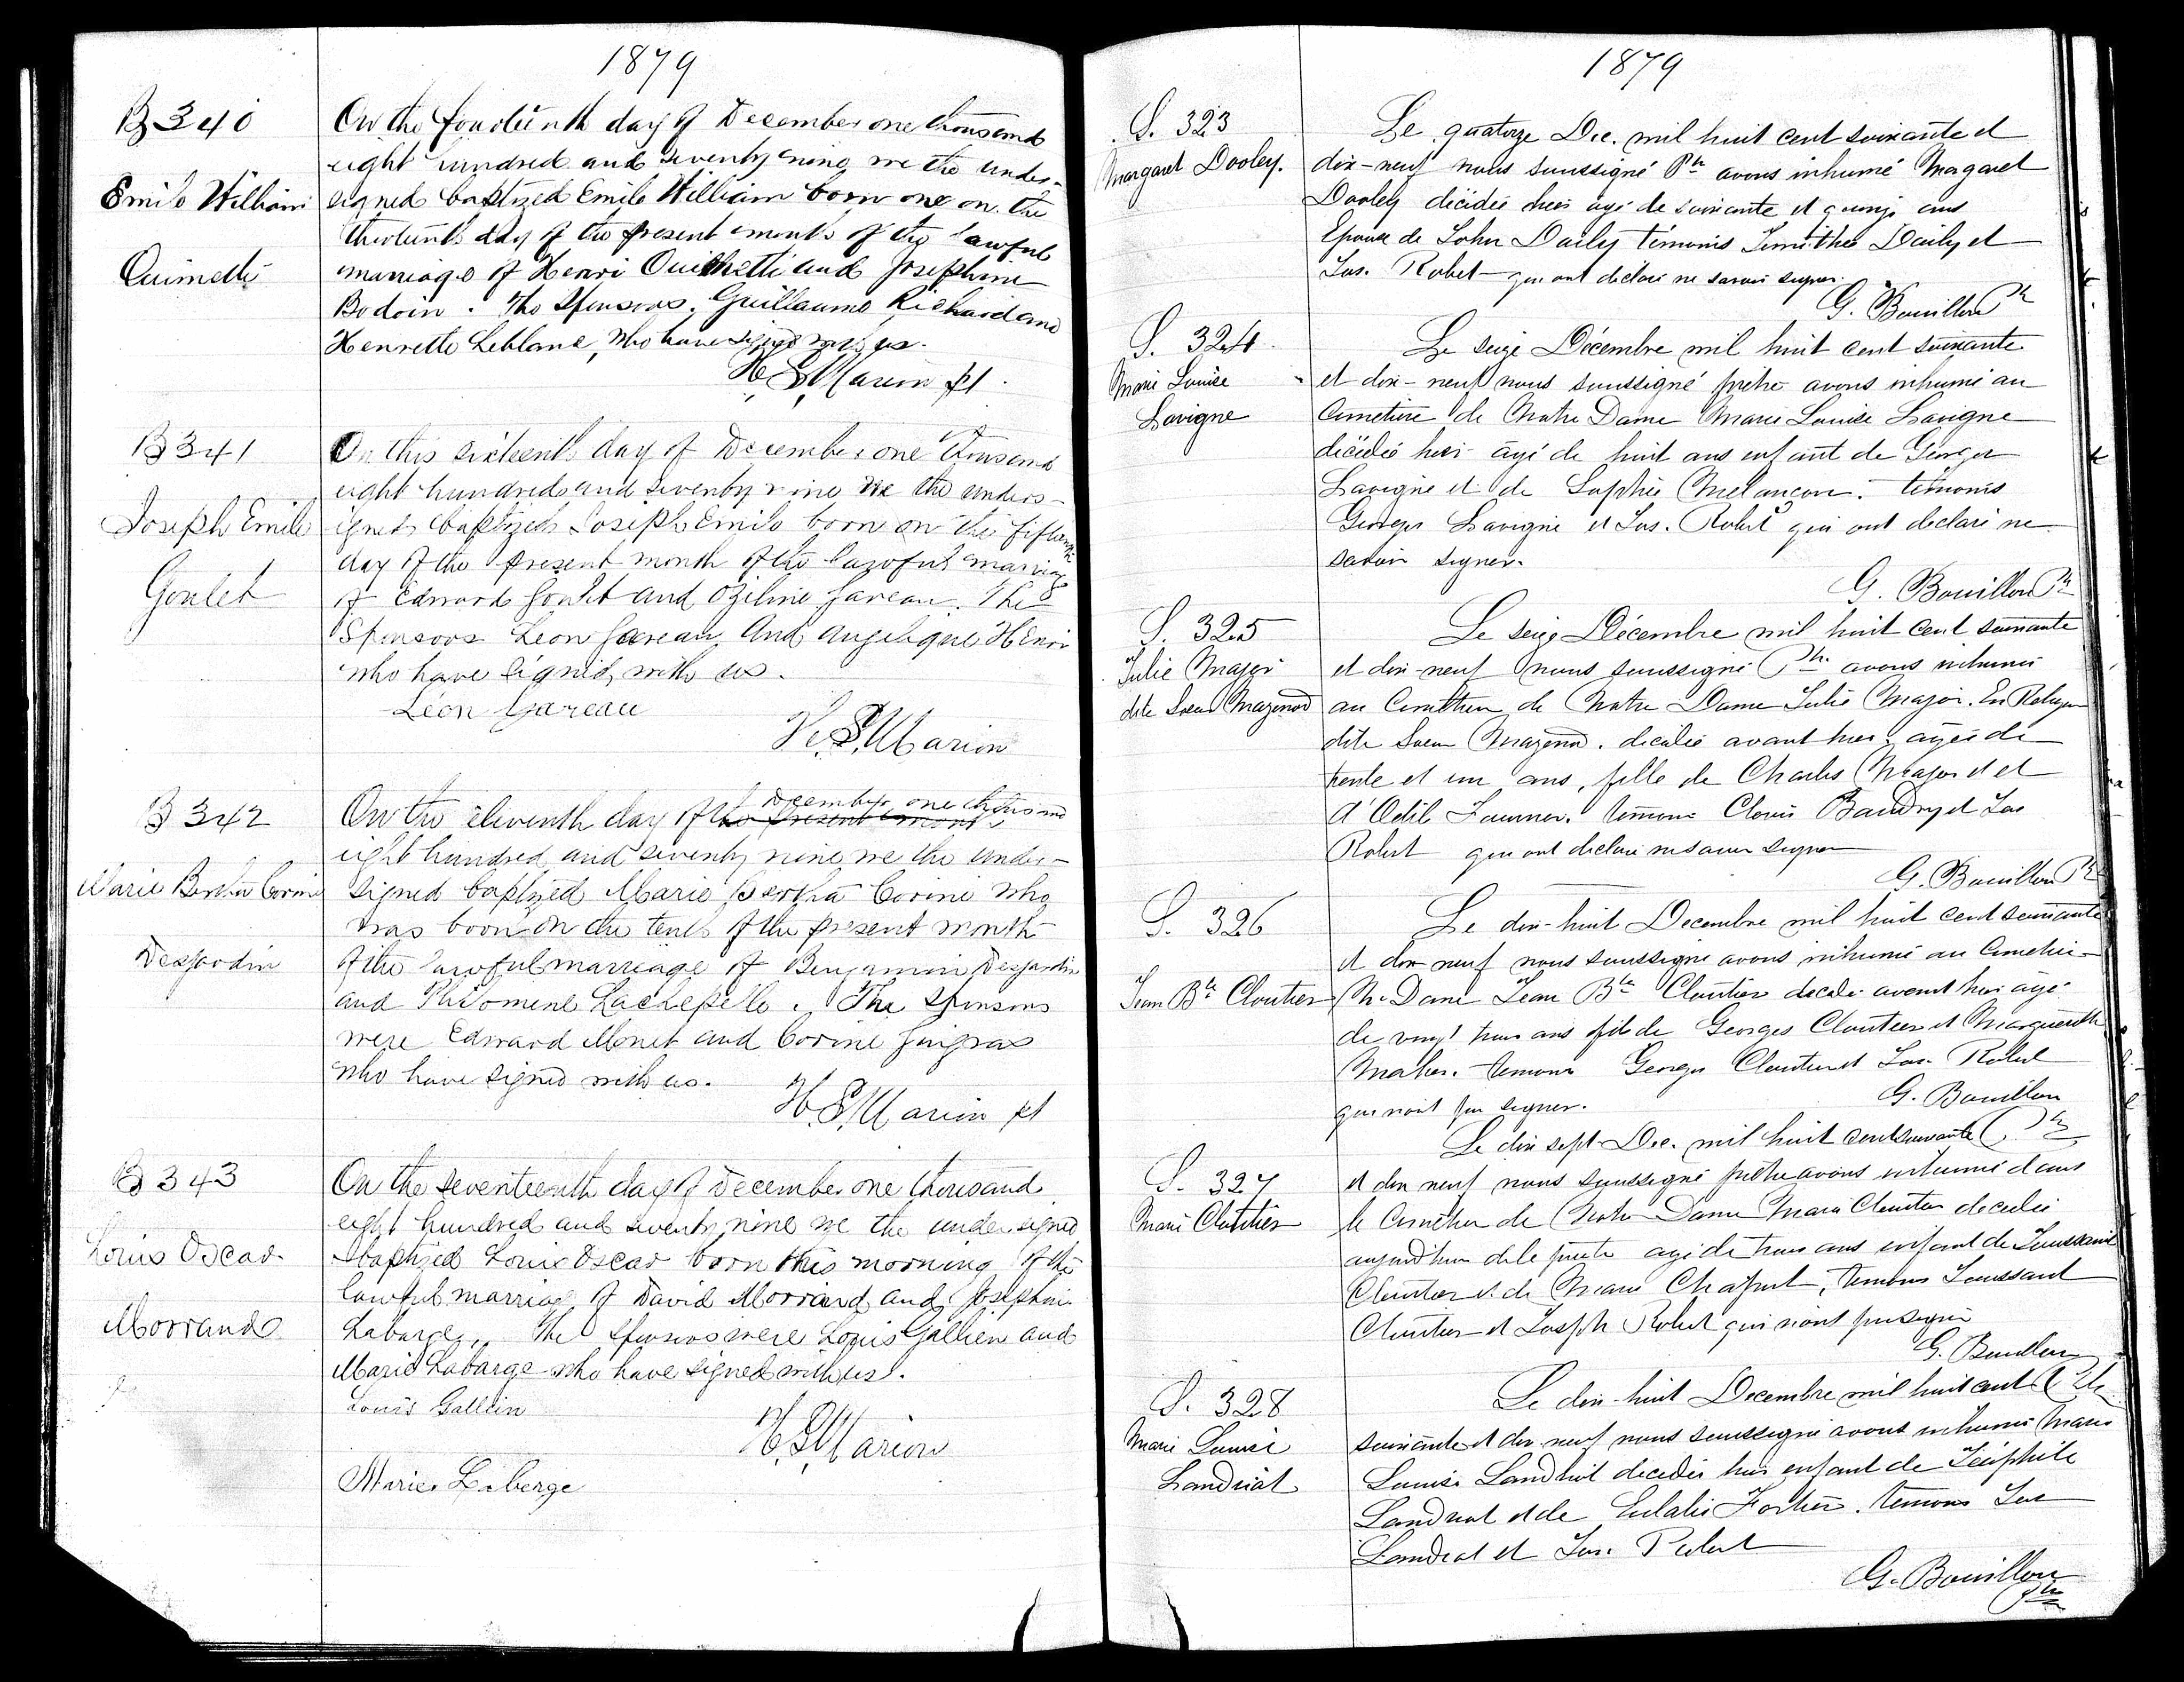 1879
B 340
Emile William
Ouimette
On the fourteenth day of December one thousand
eight hundred and seventy nine we the under-
signed baptized Emile William born one on the
thirteenth day of the present month of the lawful
marriage of Henri Ouimette and Josephine
Bodoin. The Sponsors. Guillaume Richard and
Henrette Leblanc, who have signed with us.
H. S. Marion pt.
B 341
Joseph Emile
Goulet
On this sixteenth day of December one thousand
eight hundred and seventy nine we the unders-
igned baptized Joseph Emile born on the fifteenth
day of the present month of the lawful marriage
of Edward Goulet and Oziline Gareau. The
Sponsors Leon Gareau and Angelique Henri
who have signed with us.
Léon Gareau
H. S. Marion
B 342
Marie Bertha Corine
Desjardin
On the eleventh day of the present month December one thousand
eight hundred and seventy nine we the under-
signed baptized Marie Bertha Corine who
was born on the tenth of the present month
of the lawful marriage of Benjamin Desjardin
and Philomene Lachapelle. The Sponsors
were Edward Monet and Corine Gingras
who have signed with us.
H. S. Marion pt
B 343
Louis Oscar
Morrand
On the seventeenth day of December one thousand
eight hundred and seventy nine we the undersigned
baptized Louis Oscar born this morning of the
lawful marriage of David Morrand and Josephine
Labarge. The Sponsors were Louis Gallien and
Marie Labarge who have signed with us.
Louis Gallien
H. S. Marion
Marie Laberge
1879
S. 323
Margaret Dooley.
Le quatorze Dec. mil huit cent soixante et
dix-neuf nous soussigné Ptre avons inhumé Margaret
Dooley décédée hier agé de soixante et quinze ans
Epouse de John Daily témoins Daily et
Jos. Robert qui ont déclaré ne savoir signer.
G. Bouillon Ptre
S. 324
Marie Louise
Lavigne
Le seize Décembre mil huit cent soixante
et dix-neuf nous soussigné prêtre avons inhumé au
Cimetière de Notre Dame Marie Louise Lavigne
décédée hier agé de huit ans enfant de Georges
Lavigne et de Sophie Melançon. témoins
Georges Lavigne et Jos. Robert qui ont declaré ne
savoir signer.
G. Bouillon Ptre
S. 325
Julie Major
dite Soeur Mazenod
Le seize Décembre mil huit cent soixante
et dix-neuf nous soussigné Ptre avons inhumé
au Cimetière de Notre Dame Julie Major. En Religion
dite Soeur Mazenod. décédée avant hier, agée de
trente et un ans, fille de Charles Major et et
d'Odile Fournier. témoins Clovis Baudry et Jos
Robert qui ont declaré ne savoir signer
G. Bouillon Ptre
S. 326
Jean Bte Cloutier
Le dix-huit Decembre mil huit cent soixante
et dix neuf nous soussigné avons inhumé au Cimetière
N. Dame Jean Bte Cloutier decedé avant hier agé
de vingt trois ans fils de Georges Cloutier et Marguerite
temoins Georges Cloutier et Jos. Robert
qui n'ont pu signer.
G. Bouillon
Ptre
S. 327
Marie Cloutier
Le dix sept Dec. mil huit cent soixante
et dix neuf nous soussigné prêtre avons inhumé dans
le Cimetière de Notre Dame Marie Cloutier decedée
aujourd'hui de la picote agé de trois ans enfant de Toussaint
Cloutier et de Marie Chaput, temoins Toussaint
Cloutier et Joseph Robert qui n'ont pu signer
G. Bouillon
Ptre
S. 328
Marie Louise
Landriat
Le dix-huit Decembre mil huit cent
soixante et dix neuf nous soussigné avons inhumé Marie
Louise Landriat decedée hier enfant de Téléphile
Landriat et de Eulalie Fortier. temoins Jos
Landriat et Jos. Robert
G. Bouillon
Ptre